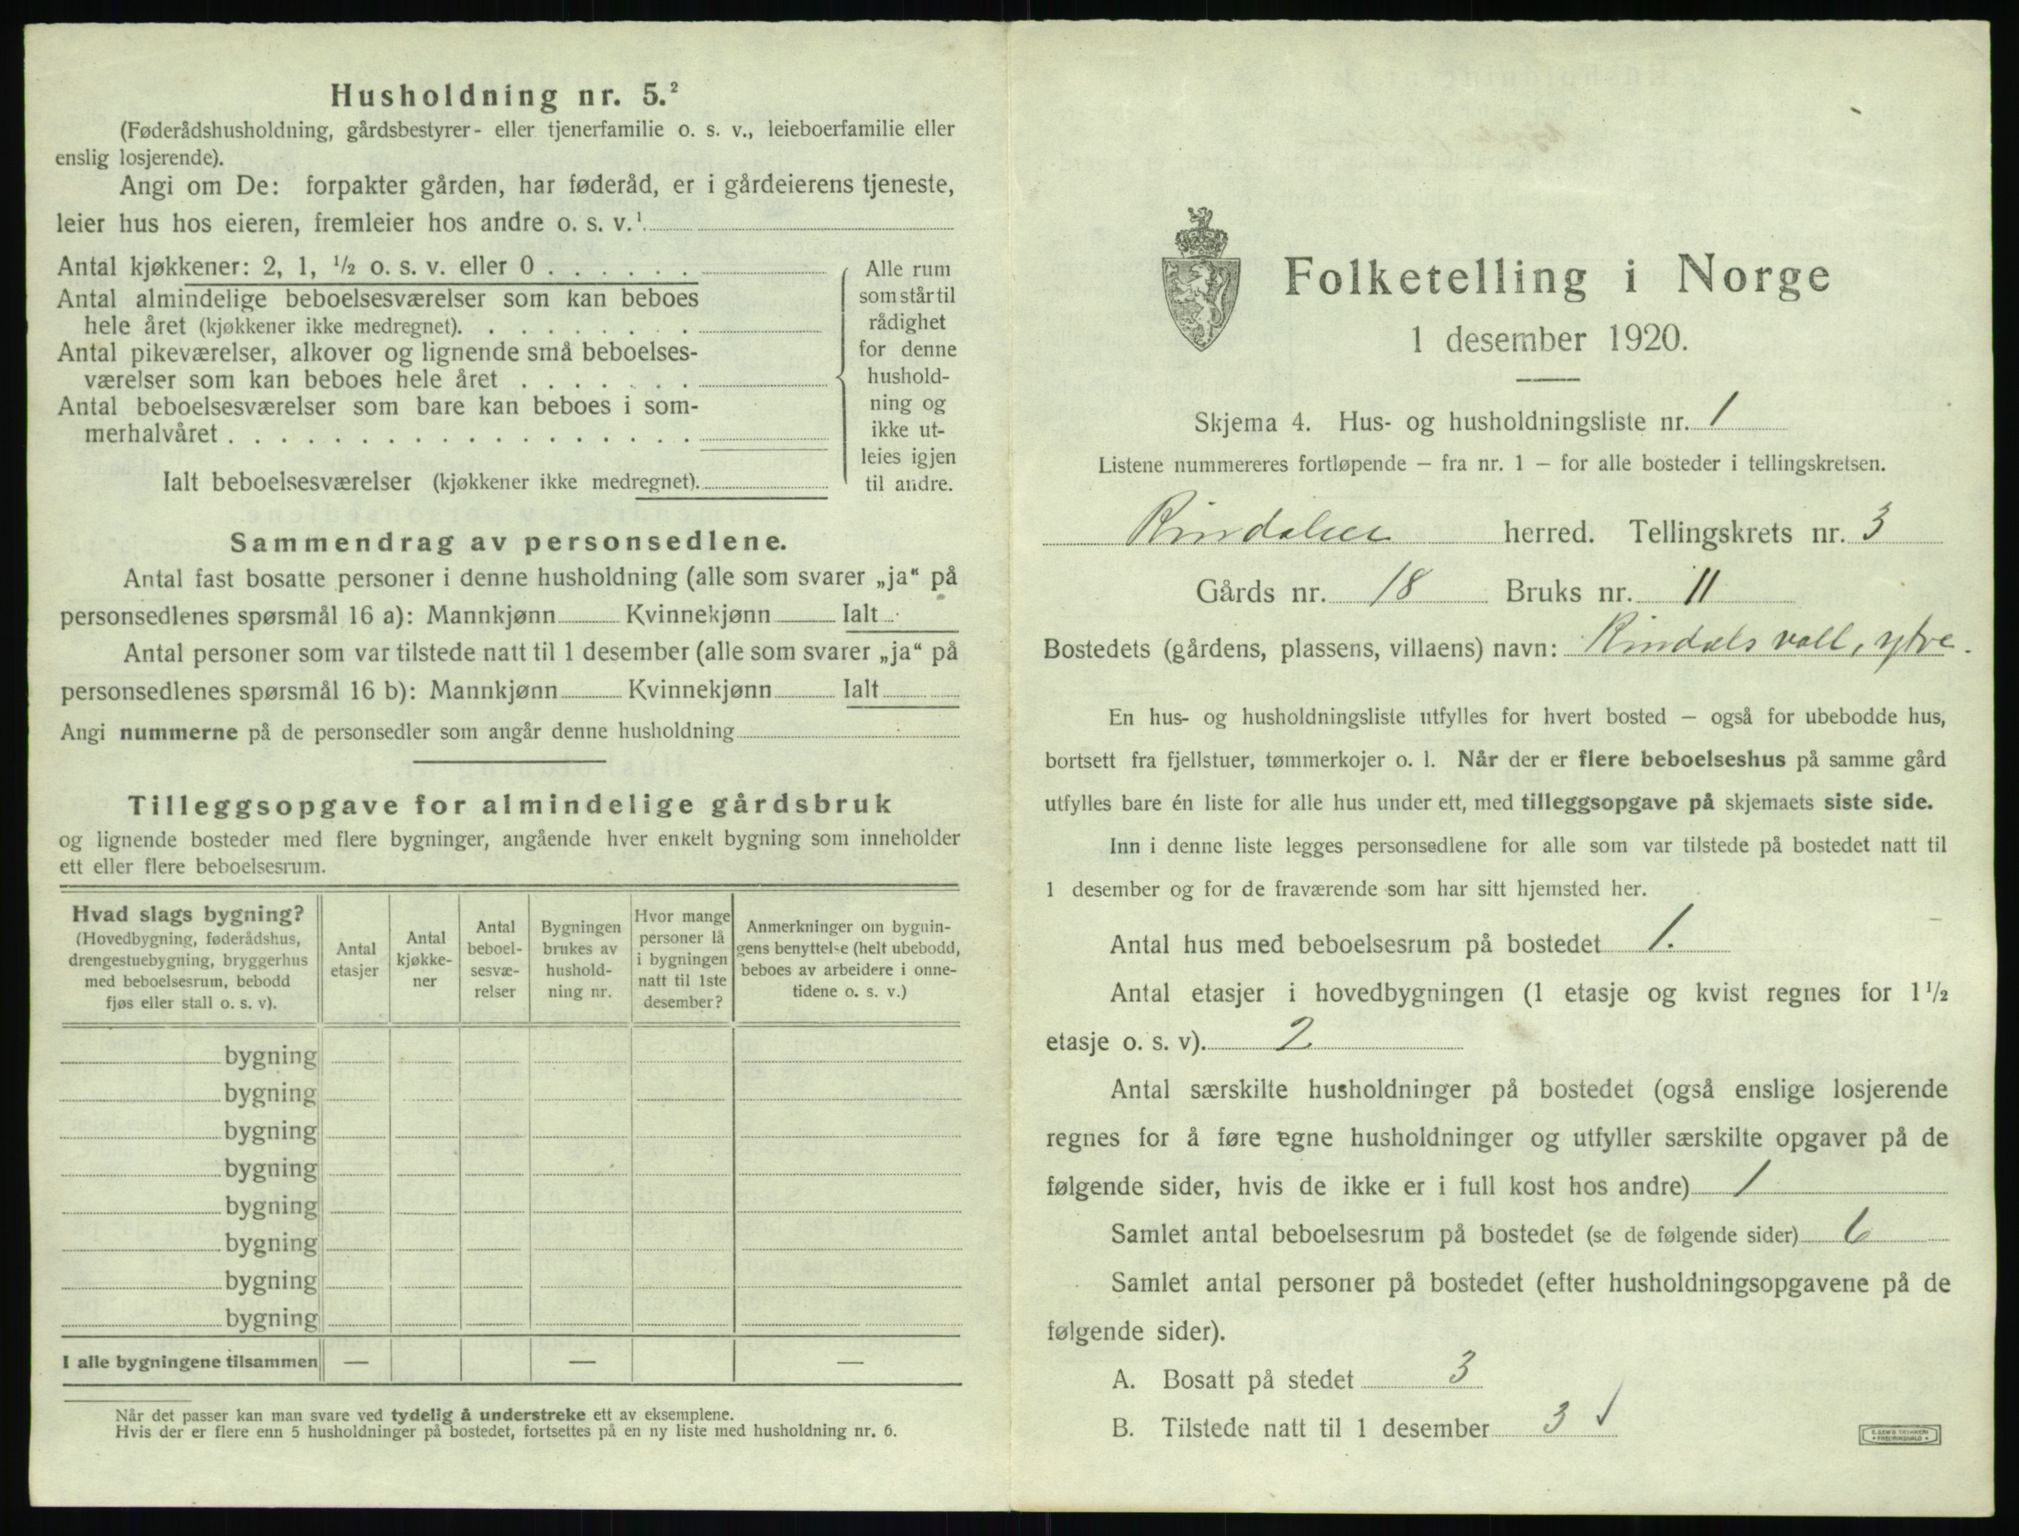 Husholdning nr. 5.²
(Føderådshusholdning, gårdsbestyrer- eller tjenerfamilie o. s. v., leieboerfamilie eller
enslig losjerende).
Angi om De: forpakter gården, har føderåd, er i gårdeierens tjeneste,
leier hus hos eieren, fremleier hos andre o. s. v.¹
Antal kjøkkener: 2, 1, ½ o. s. v. eller 0 . . . . . .
Antal almindelige beboelsesværelser som kan beboes
hele året (kjøkkener ikke medregnet). . . . . . . . .
Antal pikeværelser, alkover og lignende små beboelses-
værelser som kan beboes hele året . . . . . . .
Antal beboelsesværelser som bare kan beboes i som-
merhalvåret . . . . . . . . . . . . . . . . . .
Ialt beboelsesværelser (kjøkkener ikke medregnet).
Alle rum
som står til
rådighet
for denne
hushold-
ning og
ikke ut-
leies igjen
til andre.
Sammendrag av personsedlene.
Antal fast bosatte personer i denne husholdning (alle som svarer „ja“ på
personsedlenes spørsmål 16 a): Mannkjønn Kvinnekjønn Ialt
Antal personer som var tilstede natt til 1 desember (alle som svarer „ja“ på
personsedlenes spørsmål 16 b): Mannkjønn Kvinnekjønn Ialt
Angi nummerne på de personsedler som angår denne husholdning
Tilleggsopgave for almindelige gårdsbruk
og lignende bosteder med flere bygninger, angående hver enkelt bygning som inneholder
ett eller flere beboelsesrum.
Hvad slags bygning?
(Hovedbygning, føderådshus,
drengestuebygning, bryggerhus
med beboelsesrum, bebodd
fjøs eller stall o. s. v).
Antal
etasjer
Antal
kjøkke-
ner
Antal
beboel-
sesvæ-
relser
Bygningen
brukes av
hushold-
ning nr.
Hvor mange
personer lå
i bygningen
natt til 1ste
desember?
Anmerkninger om bygnin-
gens benyttelse (helt ubebodd,
beboes av arbeidere i onne-
tidene o. s. v.)
bygning
bygning
bygning
bygning
bygning
bygning
bygning
bygning
I alle bygningene tilsammen — — —
Når det passer kan man svare ved tydelig å understreke ett av eksemplene.
Hvis der er flere enn 5 husholdninger på bostedet, fortsettes på en ny liste med husholdning nr. 6.
Folketelling i Norge
1 desember 1920.
Skjema 4. Hus- og husholdningsliste nr. 1
Listene nummereres fortløpende — fra nr. 1 — for alle bosteder i tellingskretsen.
Rindalen herred. Tellingskrets nr. 3
Gårds nr. 18 Bruks nr. 11
Bostedets (gårdens, plassens, villaens) navn: Rindalsvoll, ytre.
En hus- og husholdningsliste utfylles for hvert bosted — også for ubebodde hus,
bortsett fra fjellstuer, tømmerkojer o. l. Når der er flere beboelseshus på samme gård
utfylles bare én liste for alle hus under ett, med tilleggsopgave på skjemaets siste side.
Inn i denne liste legges personsedlene for alle som var tilstede på bostedet natt til
1 desember og for de fraværende som har sitt hjemsted her.
Antal hus med beboelsesrum på bostedet 1.
Antal etasjer i hovedbygningen (1 etasje og kvist regnes for 1½
etasje o. s. v). 2
Antal særskilte husholdninger på bostedet (også enslige losjerende
regnes for å føre egne husholdninger og utfyller særskilte opgaver på de
følgende sider, hvis de ikke er i full kost hos andre) 1
Samlet antal beboelsesrum på bostedet (se de følgende sider) 6
Samlet antal personer på bostedet (efter husholdningsopgavene på de
følgende sider).
A. Bosatt på stedet 3
B. Tilstede natt til 1 desember 3 √